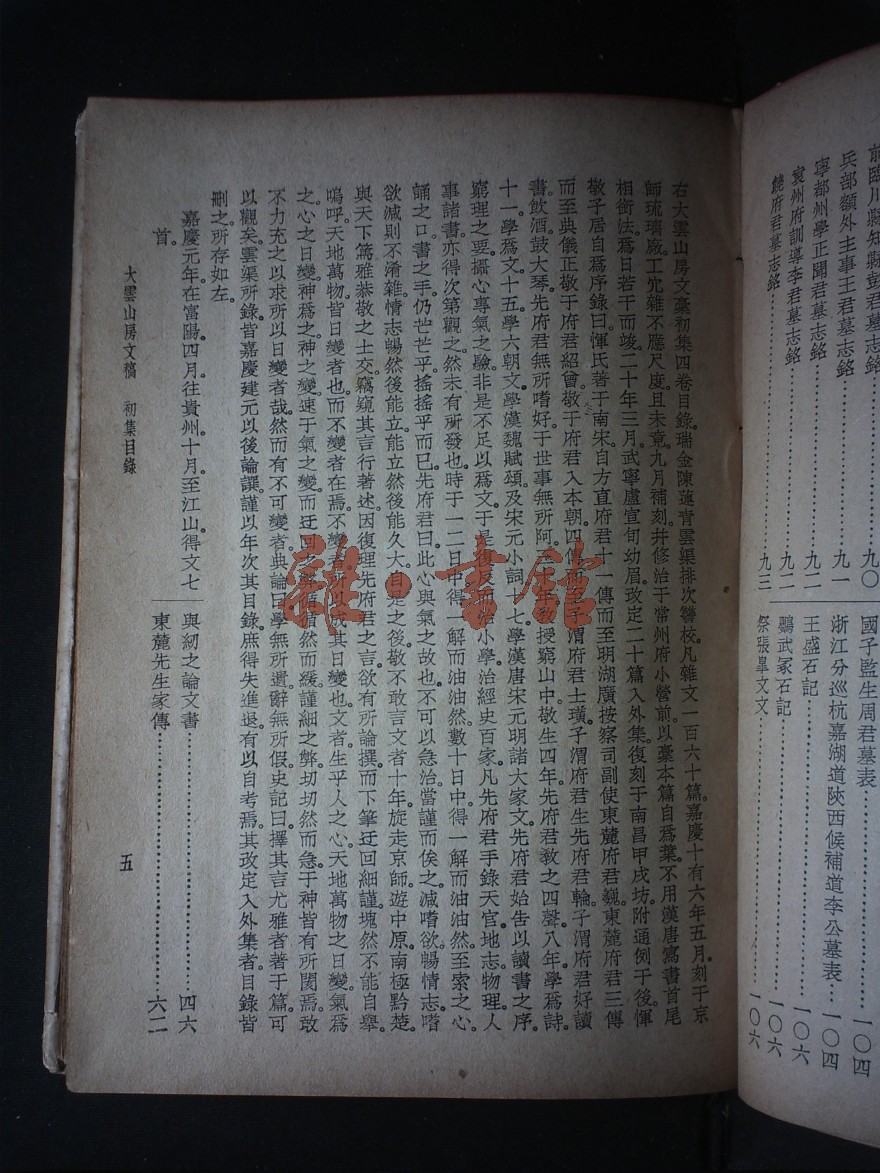 前臨川縣知縣彭君墓志銘……九〇
兵部額外主事王君墓志銘……九一
寧都州學正關君墓志銘……九二
袁州府訓導李君墓志銘……九二
饒府君墓志銘……九三
國子監生周君墓表……一〇四
浙江分巡杭嘉湖道陝西候補道李公墓表……一〇四
王盛石記……一〇六
鸚武冢石記……一〇六
祭張皐文文……一〇六
右大雲山房文稾初集四卷目錄瑞金陳蓮青雲渠排次讐校凡雜文一百六十篇嘉慶十有六年五月刻于京
師琉璃廠工宂雜不應尺度且未竟九月補刻幷修治于常州府小營前以稾本篇自爲葉不用漢唐寫書首尾
相銜法爲日若干而竣二十年三月武寧盧宣旬幼眉改定二十篇入外集復刻于南昌甲戌坊附通例于後惲
敬子居自爲序錄曰惲氏著于南宋自方直府君十一傳而至明湖廣按察司副使東麓府君巍東麓府君三傳
而至典儀正敬于府君紹曾敬于府君入本朝四傳而子渭府君士璜子渭府君生先府君輪子渭府君好讀
書飲酒鼓大琴先府君無所嗜好于世事無所阿三年敎授窮山中敬生四年先府君敎之四聲八年學爲詩
十一學爲文十五學六朝文學漢魏賦頌及宋元小詞十七學漢唐宋元明諸大家文先府君始告以讀書之序
窮理之要攝心專氣之驗非是不足以爲文于是復反而治小學治經史百家凡先府君手錄天官地志物理人
事諸書亦得次第觀之然未有所發也時于一二日中得一解而油油然數十日中得一解而油油然至索之心
誦之口書之手仍芒芒乎搖搖乎而已先府君曰此心與氣之故也不可以急治當謹而俟之減嗜欲暢情志嗜
欲減則不淆雜情志暢然後能立能立然後能久大自是之後敬不敢言文者十年旋走京師遊中原南極黔楚
與天下篤雅恭敬之士交竊窺其言行著述因復理先府君之言欲有所論撰而下筆迂回細謹塊然不能自舉
嗚呼天地萬物皆日變者也而不變者在焉不變者所以成其日變也文者生乎人之心天地萬物之日變氣爲
之心之日變神爲之神之變速于氣之變而迂回之弊循然而緩謹細之弊切切然而急于神皆有所閡焉敢
不力充之以求所以日變者哉然而有不可變者典論曰學無所遺辭無所假史記曰擇其言尤雅者著于篇可
以觀矣雲渠所錄皆嘉慶建元以後論譔謹以年次其目錄庶得失進退有以自考焉其改定入外集者目錄皆
刪之所存如左
嘉慶元年在富陽四月往貴州十月至江山得文七
首
大雲山房文稿　初集目錄
五
與紉之論文書……四六
東麓先生家傳……六二
雜·書館